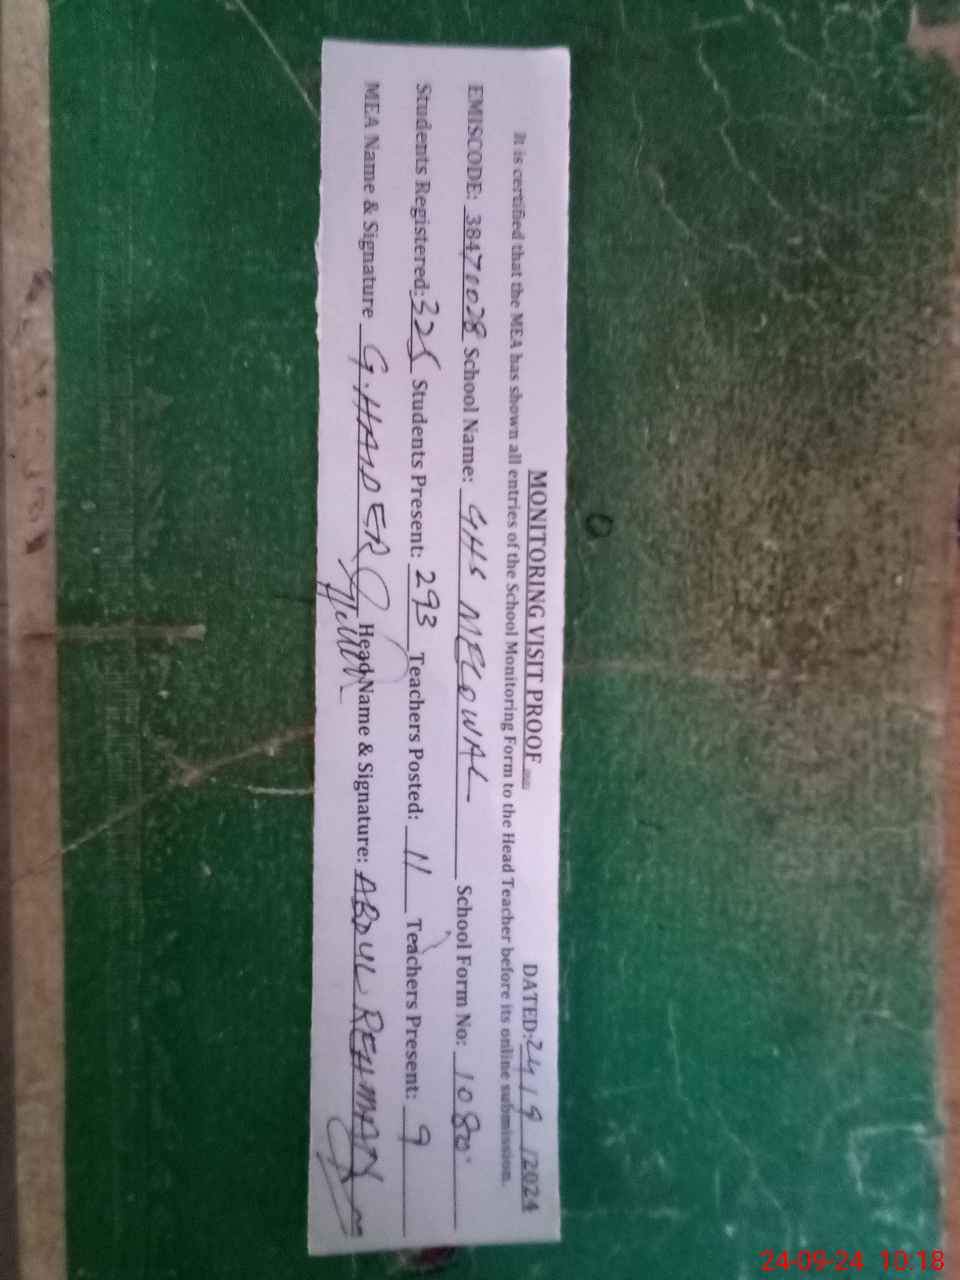 MONITORING VISIT PROOF
DATED: 24/9/2024
It is certified that the MEA has shown all entries of the School Monitoring Form to the Head Teacher before its online submission.
EMISCODE: 38470028 School Name: GHS MELOWAL School Form No: 1080
Students Registered: 325 Students Present: 293 Teachers Posted: 11 Teachers Present: 9
MEA Name & Signature G.HAIDER Head Name & Signature: ABDUL REHMAN
24-09-24 10:18